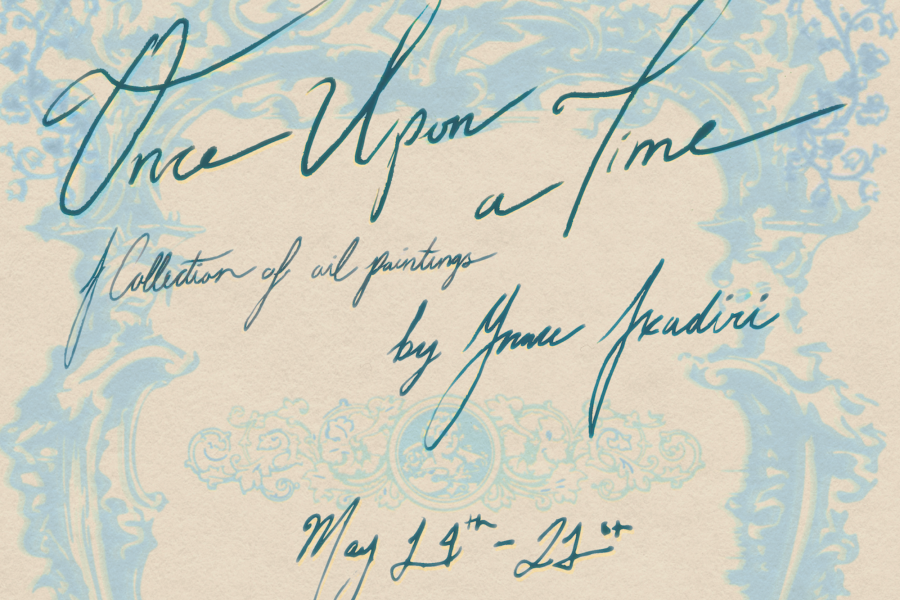 Once Upon
a Time
A Collection of oil paintings
by Grace Ikadiri
May 14th - 21st